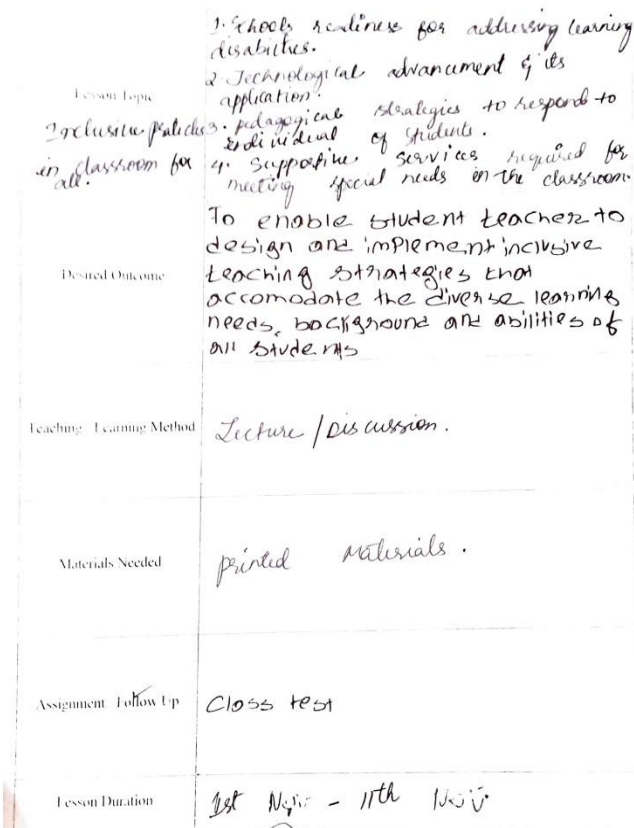 1. Schools readiness for addressing learning
disabilities.
2. Technological advancement & its
application.
Lesson Topic
Inclusive practices
in classroom for
all.
3. pedagogical strategies to respond to
individual of students.
4. Supportive services required for
meeting special needs in the classroom.
Desired Outcome
To enable student teacher to
design and implement inclusive
teaching strategies that
accomodate the diverse learning
needs, background and abilities of
all students
Teaching Learning Method
Lecture / Discussion.
Materials Needed
printed materials.
Assignment Follow Up
Class test
Lesson Duration
1st Nov - 11th Nov